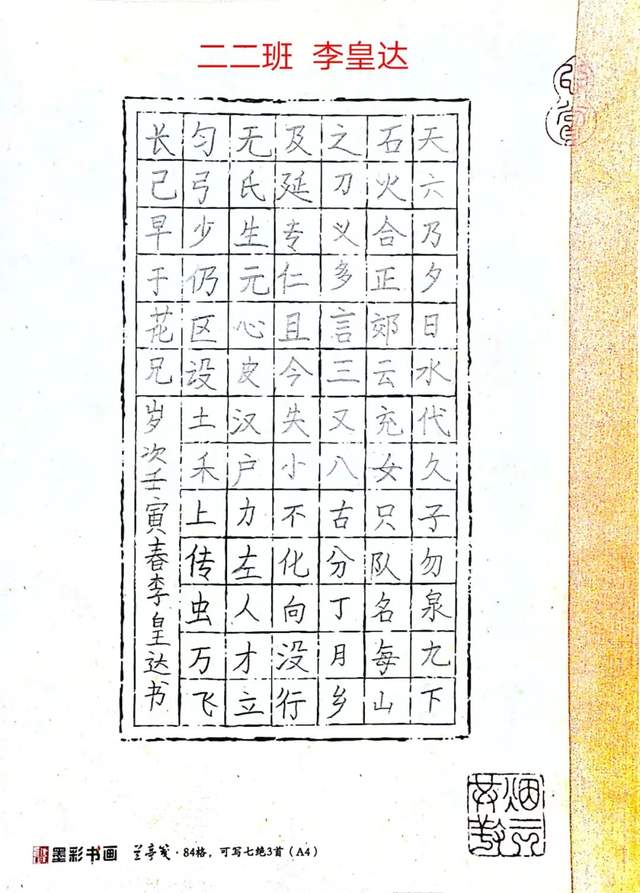 二二班 李皇达
天六乃夕日水代久子勿泉九下
石火合正郊云充女只队名每山
之刀义多言三又八古分丁月乡
及延专仁且今失小不化向没行
无氏生元心史汉户力左人才立
匀弓少仍区设土禾上传虫万飞
长己早于花兄
岁次壬寅春李皇达书
墨彩书画 兰亭笺·84格,可写七绝3首(A4)